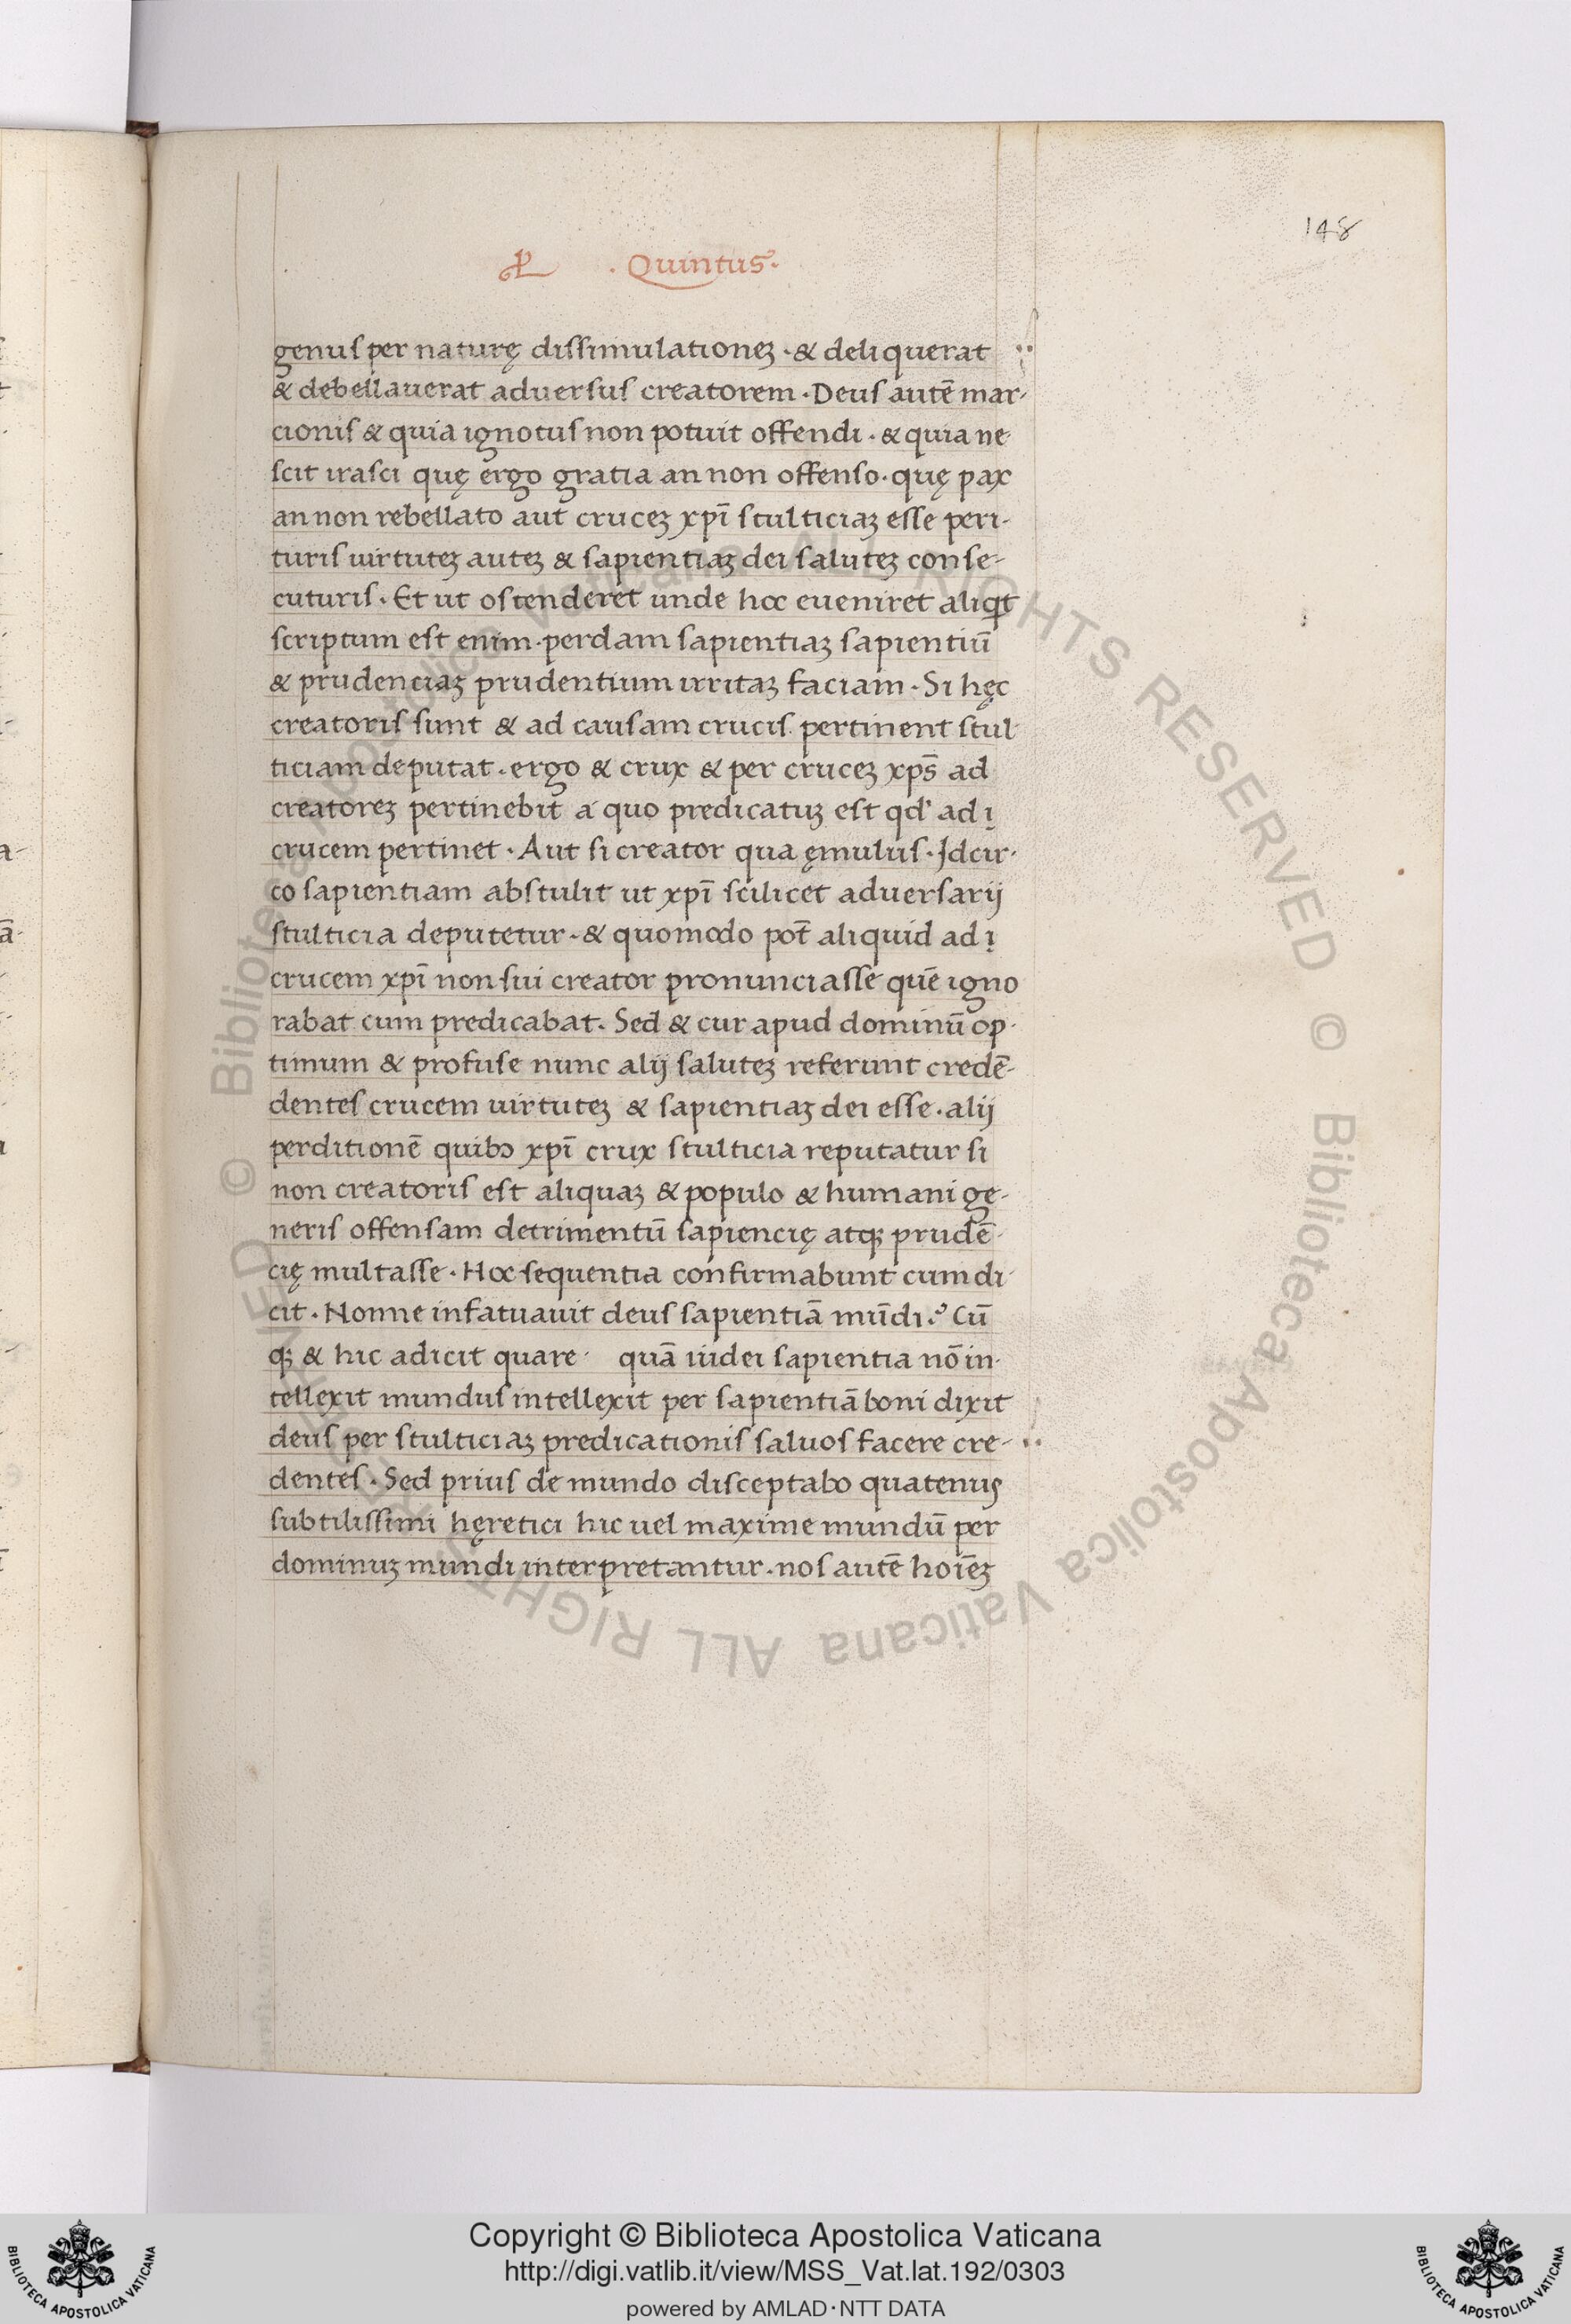 148
. Quintus.
genus per naturę dissimulationeʒ · & deliquerat
& debellauerat aduersus creatorem · Deus autē mar-
cionis & quia ignotus non potuit offendi · & quia ne
scit irasci quę ergo gratia an non offenso · quę pax
an non rebellato aut cruceʒ xpī stulticiaʒ esse peri-
turis uirtuteʒ auteʒ & sapientiaʒ dei saluteʒ conse-
cuturis · Et ut ostenderet unde hoc eueniret
scriptum est enim · perdam sapientiaʒ sapientiū
& prudenciaʒ prudentium irritaʒ faciam · Si hęc
creatoris sunt & ad causam crucis pertinent stul
ticiam deputat · ergo & crux & per cruceʒ xps̄ ad
creatoreʒ pertinebit a quo predicatuʒ est qd' ad ị
crucem pertinet · Aut si creator qua ęmulus · Idcir-
co sapientiam abstulit ut xpī scilicet aduersarij
stulticia deputetur · & quomodo pot̄ aliquid ad ị
crucem xpī non sui creator pronunciasse quē igno
rabat cum predicabat · Sed & cur apud dominū op-
timum & profuse nunc alij saluteʒ referunt credē-
dentes crucem uirtuteʒ & sapientiaʒ dei esse · alij
perditionē quibɔ xpī crux stulticia reputatur si
non creatoris est aliquaʒ & populo & humani ge-
neris offensam detrimentū sapiencię atqꝫ prudē-
cię multasse · Hoc sequentia confirmabunt cum di
cit · Nonne infatuauit deus sapientiā mūdi? Cū
qꝫ & hic adicit quare · quā iudei sapientia nō in-
tellexit mundus intellexit per sapientiā boni dixit
deus per stulticiaʒ predicationis saluos facere cre-
dentes · Sed prius de mundo disceptabo quatenus
subtilissimi hęretici hic uel maxime mundū per
dominuʒ mundi interpretantur · nos autē hoīeʒ
© Biblioteca Apostolica Vaticana ALL RIGHTS RESERVED
Copyright © Biblioteca Apostolica Vaticana
http://digi.vatlib.it/view/MSS_Vat.lat.192/0303
powered by AMLAD·NTT DATA
BIBLIOTECA APOSTOLICA VATICANA
BIBLIOTECA APOSTOLICA VATICANA